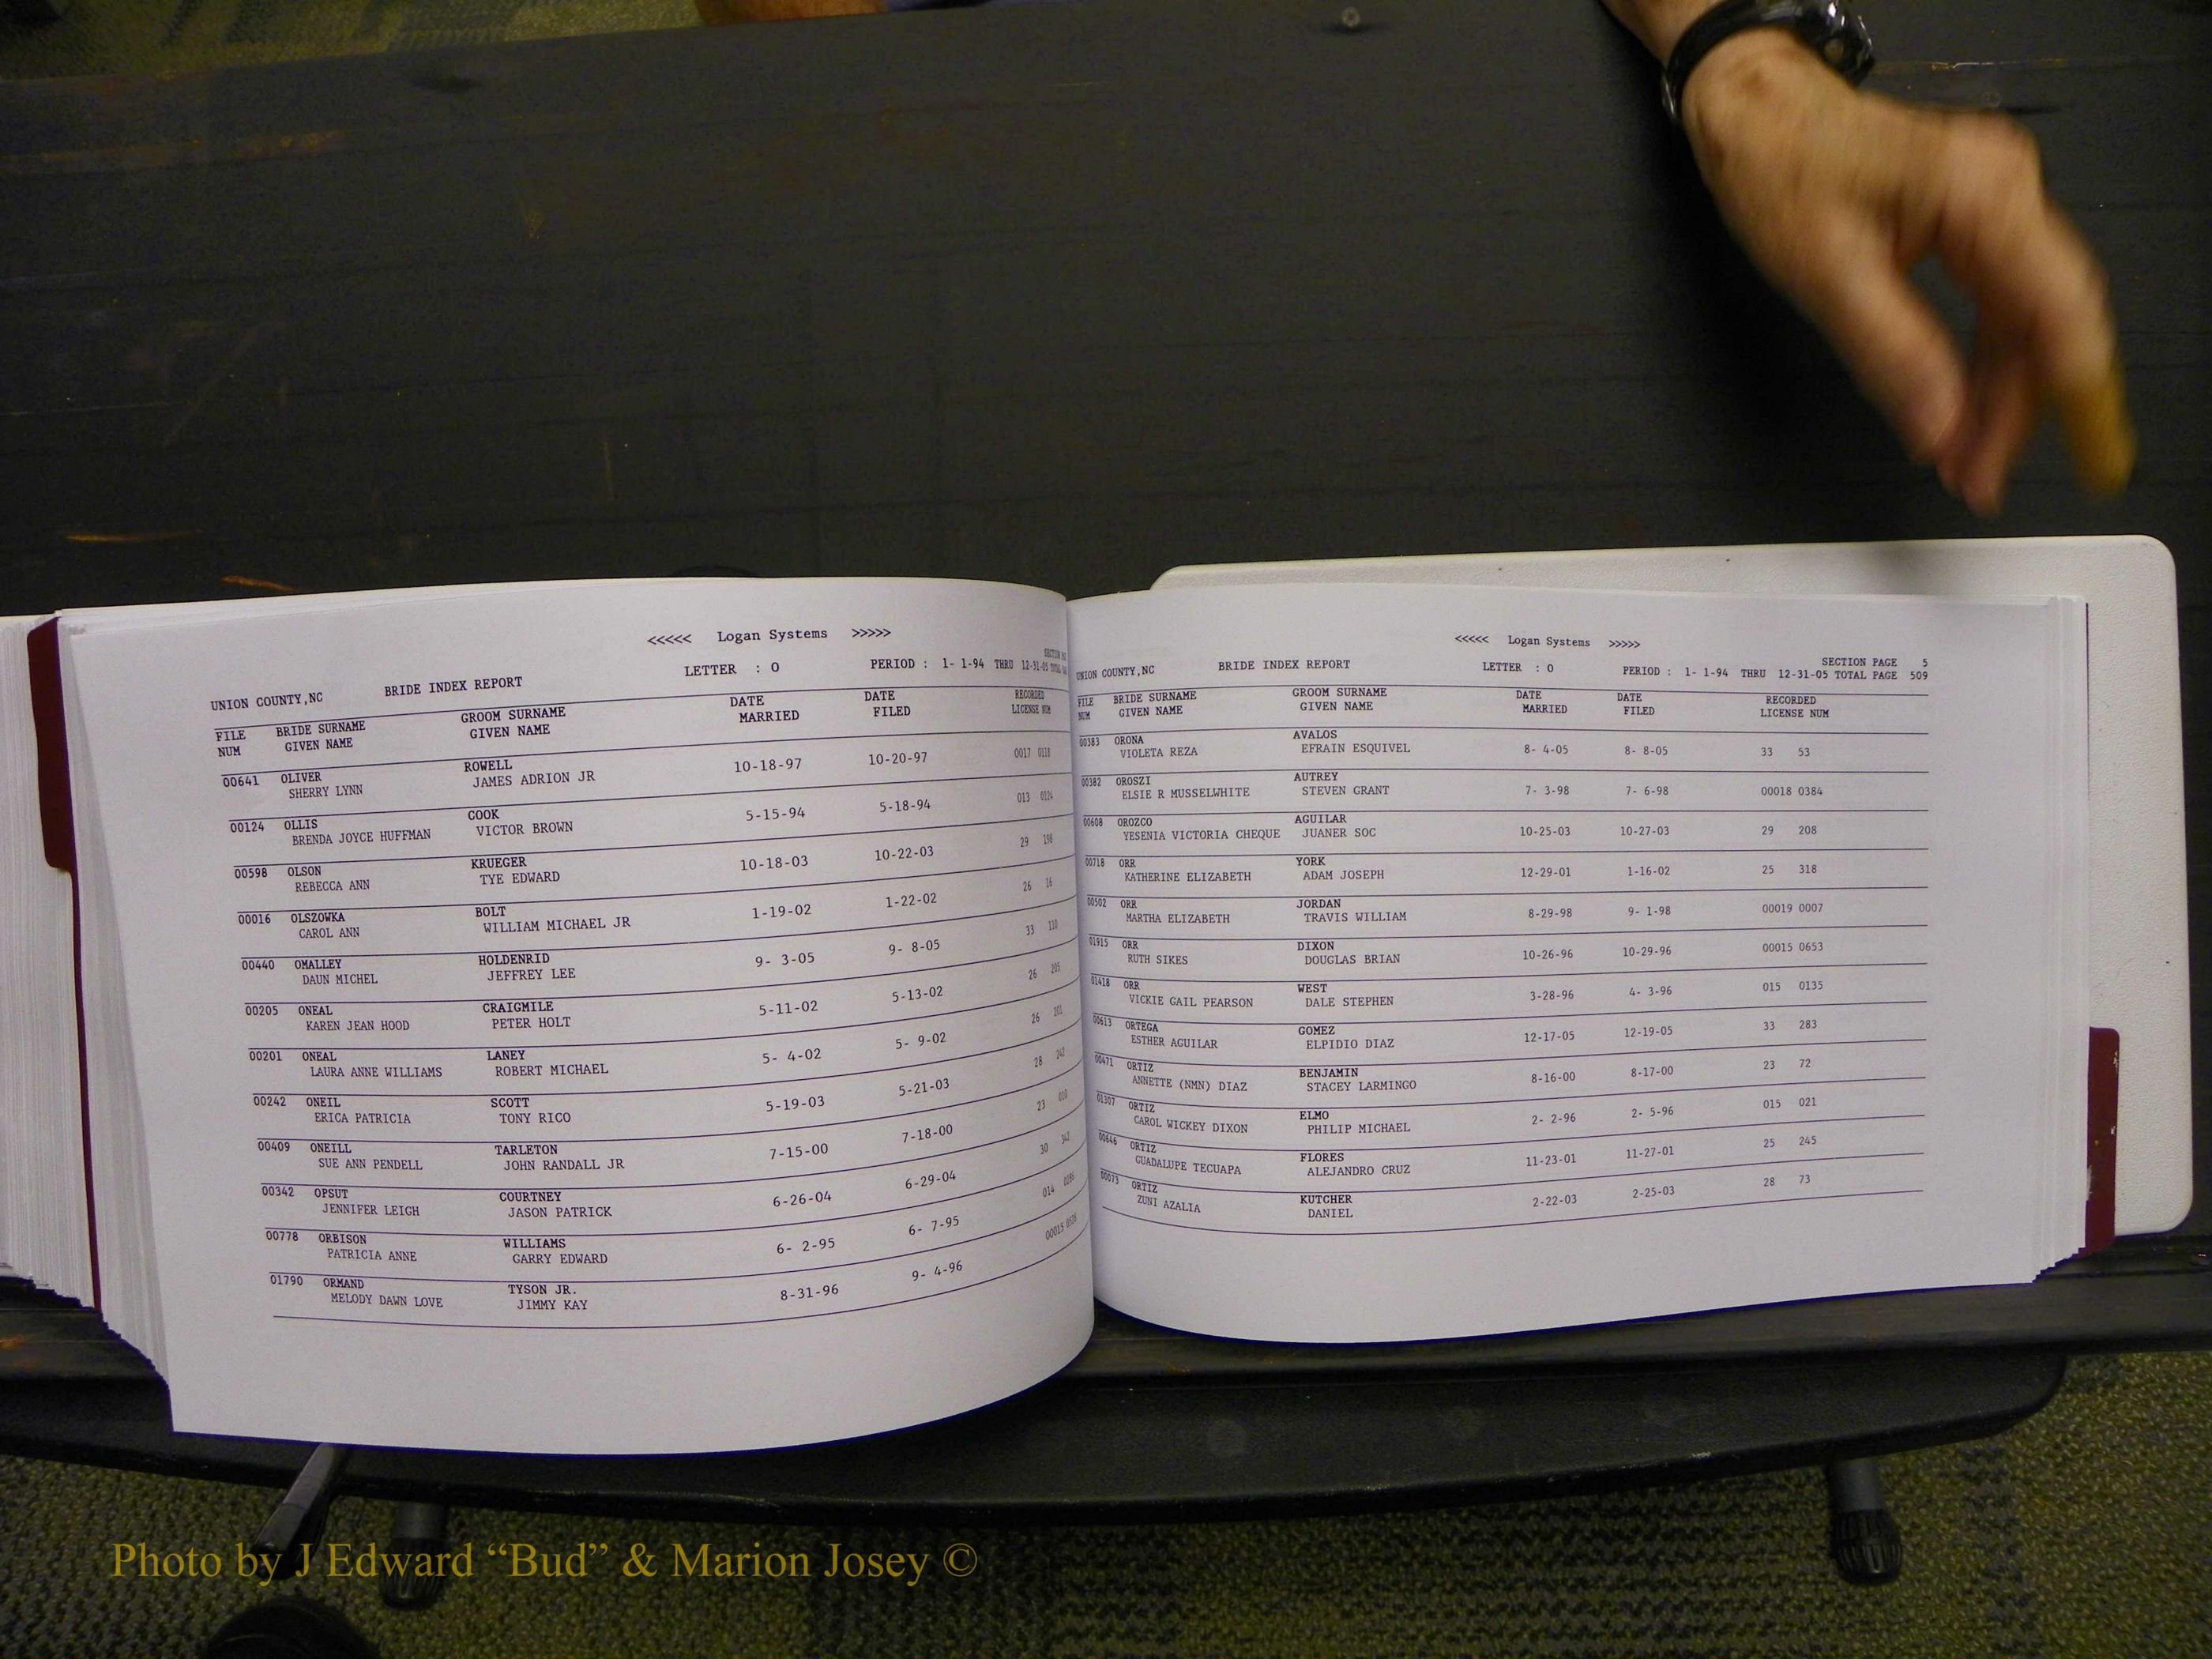 <<<<< Logan Systems >>>>>
UNION COUNTY,NC BRIDE INDEX REPORT LETTER : O PERIOD : 1- 1-94 THRU 12-31-05 TOTAL
FILE BRIDE SURNAME GROOM SURNAME DATE DATE RECORDED
NUM GIVEN NAME GIVEN NAME MARRIED FILED LICENSE NUM
00641 OLIVER ROWELL 10-18-97 10-20-97 0017 0118
SHERRY LYNN JAMES ADRION JR
00124 OLLIS COOK 5-15-94 5-18-94 013
BRENDA JOYCE HUFFMAN VICTOR BROWN
00598 OLSON KRUEGER 10-18-03 10-22-03 29 198
REBECCA ANN TYE EDWARD
00016 OLSZOWKA BOLT 1-19-02 1-22-02 26 16
CAROL ANN WILLIAM MICHAEL JR
00440 OMALLEY HOLDENRID 9- 3-05 9- 8-05 33 110
DAUN MICHEL JEFFREY LEE
00205 ONEAL CRAIGMILE 5-11-02 5-13-02 26 205
KAREN JEAN HOOD PETER HOLT
00201 ONEAL LANEY 5- 4-02 5- 9-02 26 201
LAURA ANNE WILLIAMS ROBERT MICHAEL
00242 ONEIL SCOTT 5-19-03 5-21-03 28 242
ERICA PATRICIA TONY RICO
00409 ONEILL TARLETON 7-15-00 7-18-00 23 010
SUE ANN PENDELL JOHN RANDALL JR
00342 OPSUT COURTNEY 6-26-04 6-29-04 30 342
JENNIFER LEIGH JASON PATRICK
00778 ORBISON WILLIAMS 6- 2-95 6- 7-95 014
PATRICIA ANNE GARRY EDWARD
01790 ORMAND TYSON JR. 8-31-96 9- 4-96 00015
MELODY DAWN LOVE JIMMY KAY
<<<<< Logan Systems >>>>>
SECTION PAGE 5
UNION COUNTY,NC BRIDE INDEX REPORT LETTER : O PERIOD : 1- 1-94 THRU 12-31-05 TOTAL PAGE 509
FILE BRIDE SURNAME GROOM SURNAME DATE DATE RECORDED
NUM GIVEN NAME GIVEN NAME MARRIED FILED LICENSE NUM
00383 ORONA AVALOS 8- 4-05 8- 8-05 33 53
VIOLETA REZA EFRAIN ESQUIVEL
00382 OROSZI AUTREY 7- 3-98 7- 6-98 00018 0384
ELSIE R MUSSELWHITE STEVEN GRANT
00608 OROZCO AGUILAR 10-25-03 10-27-03 29 208
YESENIA VICTORIA CHEQUE JUANER SOC
00718 ORR YORK 12-29-01 1-16-02 25 318
KATHERINE ELIZABETH ADAM JOSEPH
00502 ORR JORDAN 8-29-98 9- 1-98 00019 0007
MARTHA ELIZABETH TRAVIS WILLIAM
01915 ORR DIXON 10-26-96 10-29-96 00015 0653
RUTH SIKES DOUGLAS BRIAN
01418 ORR WEST 3-28-96 4- 3-96 015 0135
VICKIE GAIL PEARSON DALE STEPHEN
00613 ORTEGA GOMEZ 12-17-05 12-19-05 33 283
ESTHER AGUILAR ELPIDIO DIAZ
00471 ORTIZ BENJAMIN 8-16-00 8-17-00 23 72
ANNETTE (NMN) DIAZ STACEY LARMINGO
01307 ORTIZ ELMO 2- 2-96 2- 5-96 015 021
CAROL WICKEY DIXON PHILIP MICHAEL
00646 ORTIZ FLORES 11-23-01 11-27-01 25 245
GUADALUPE TECUAPA ALEJANDRO CRUZ
00073 ORTIZ KUTCHER 2-22-03 2-25-03 28 73
ZUNI AZALIA DANIEL
Photo by J Edward “Bud” & Marion Josey ©